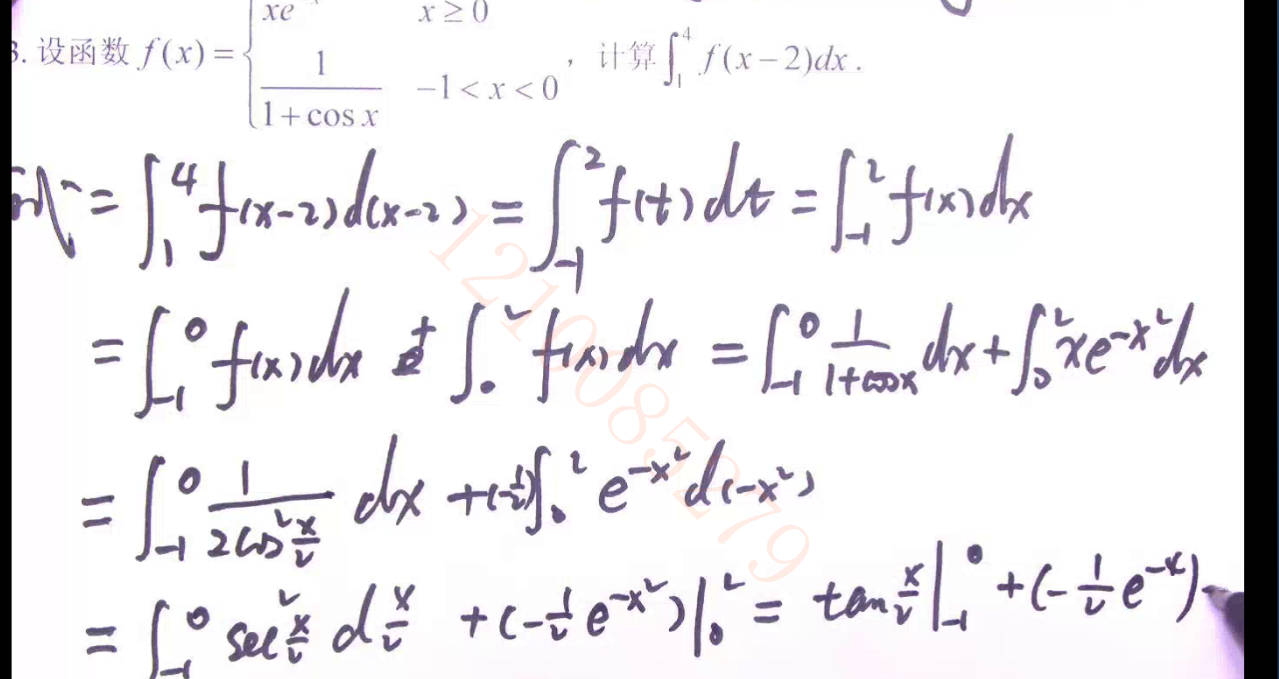 xe
x ≥ 0
3. 设函数 f(x) = { 1/(1+cos x)   −1 < x < 0 , 计算 ∫₁⁴ f(x−2)dx .
= ∫₁⁴ f(x-2)d(x-2) = ∫₋₁² f(t)dt = ∫₋₁² f(x)dx
= ∫₋₁⁰ f(x)dx + ∫₀² f(x)dx = ∫₋₁⁰ 1/(1+cosx) dx + ∫₀² xe^(-x²)dx
= ∫₋₁⁰ 1/(2cos² x/2) dx + (-1/2)∫₀² e^(-x²)d(-x²)
= ∫₋₁⁰ sec² x/2 d x/2 + (-1/2 e^(-x²))|₀² = tan x/2 |₋₁⁰ + (-1/2 e^(-4))-
1210085279